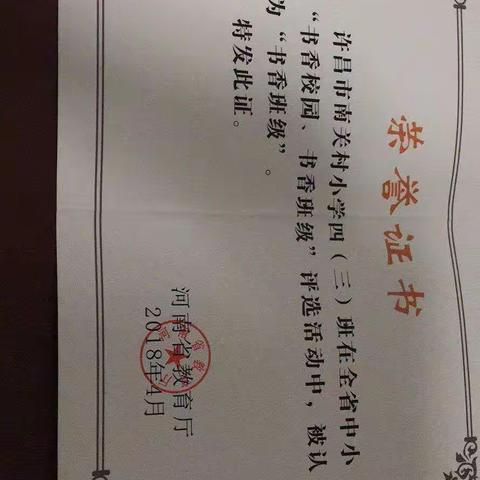 荣誉证书
许昌市南关村小学四（三）班在全省中小
“书香校园、书香班级”评选活动中，被认
为“书香班级”。
特发此证。
河南省教育厅
2018年4月